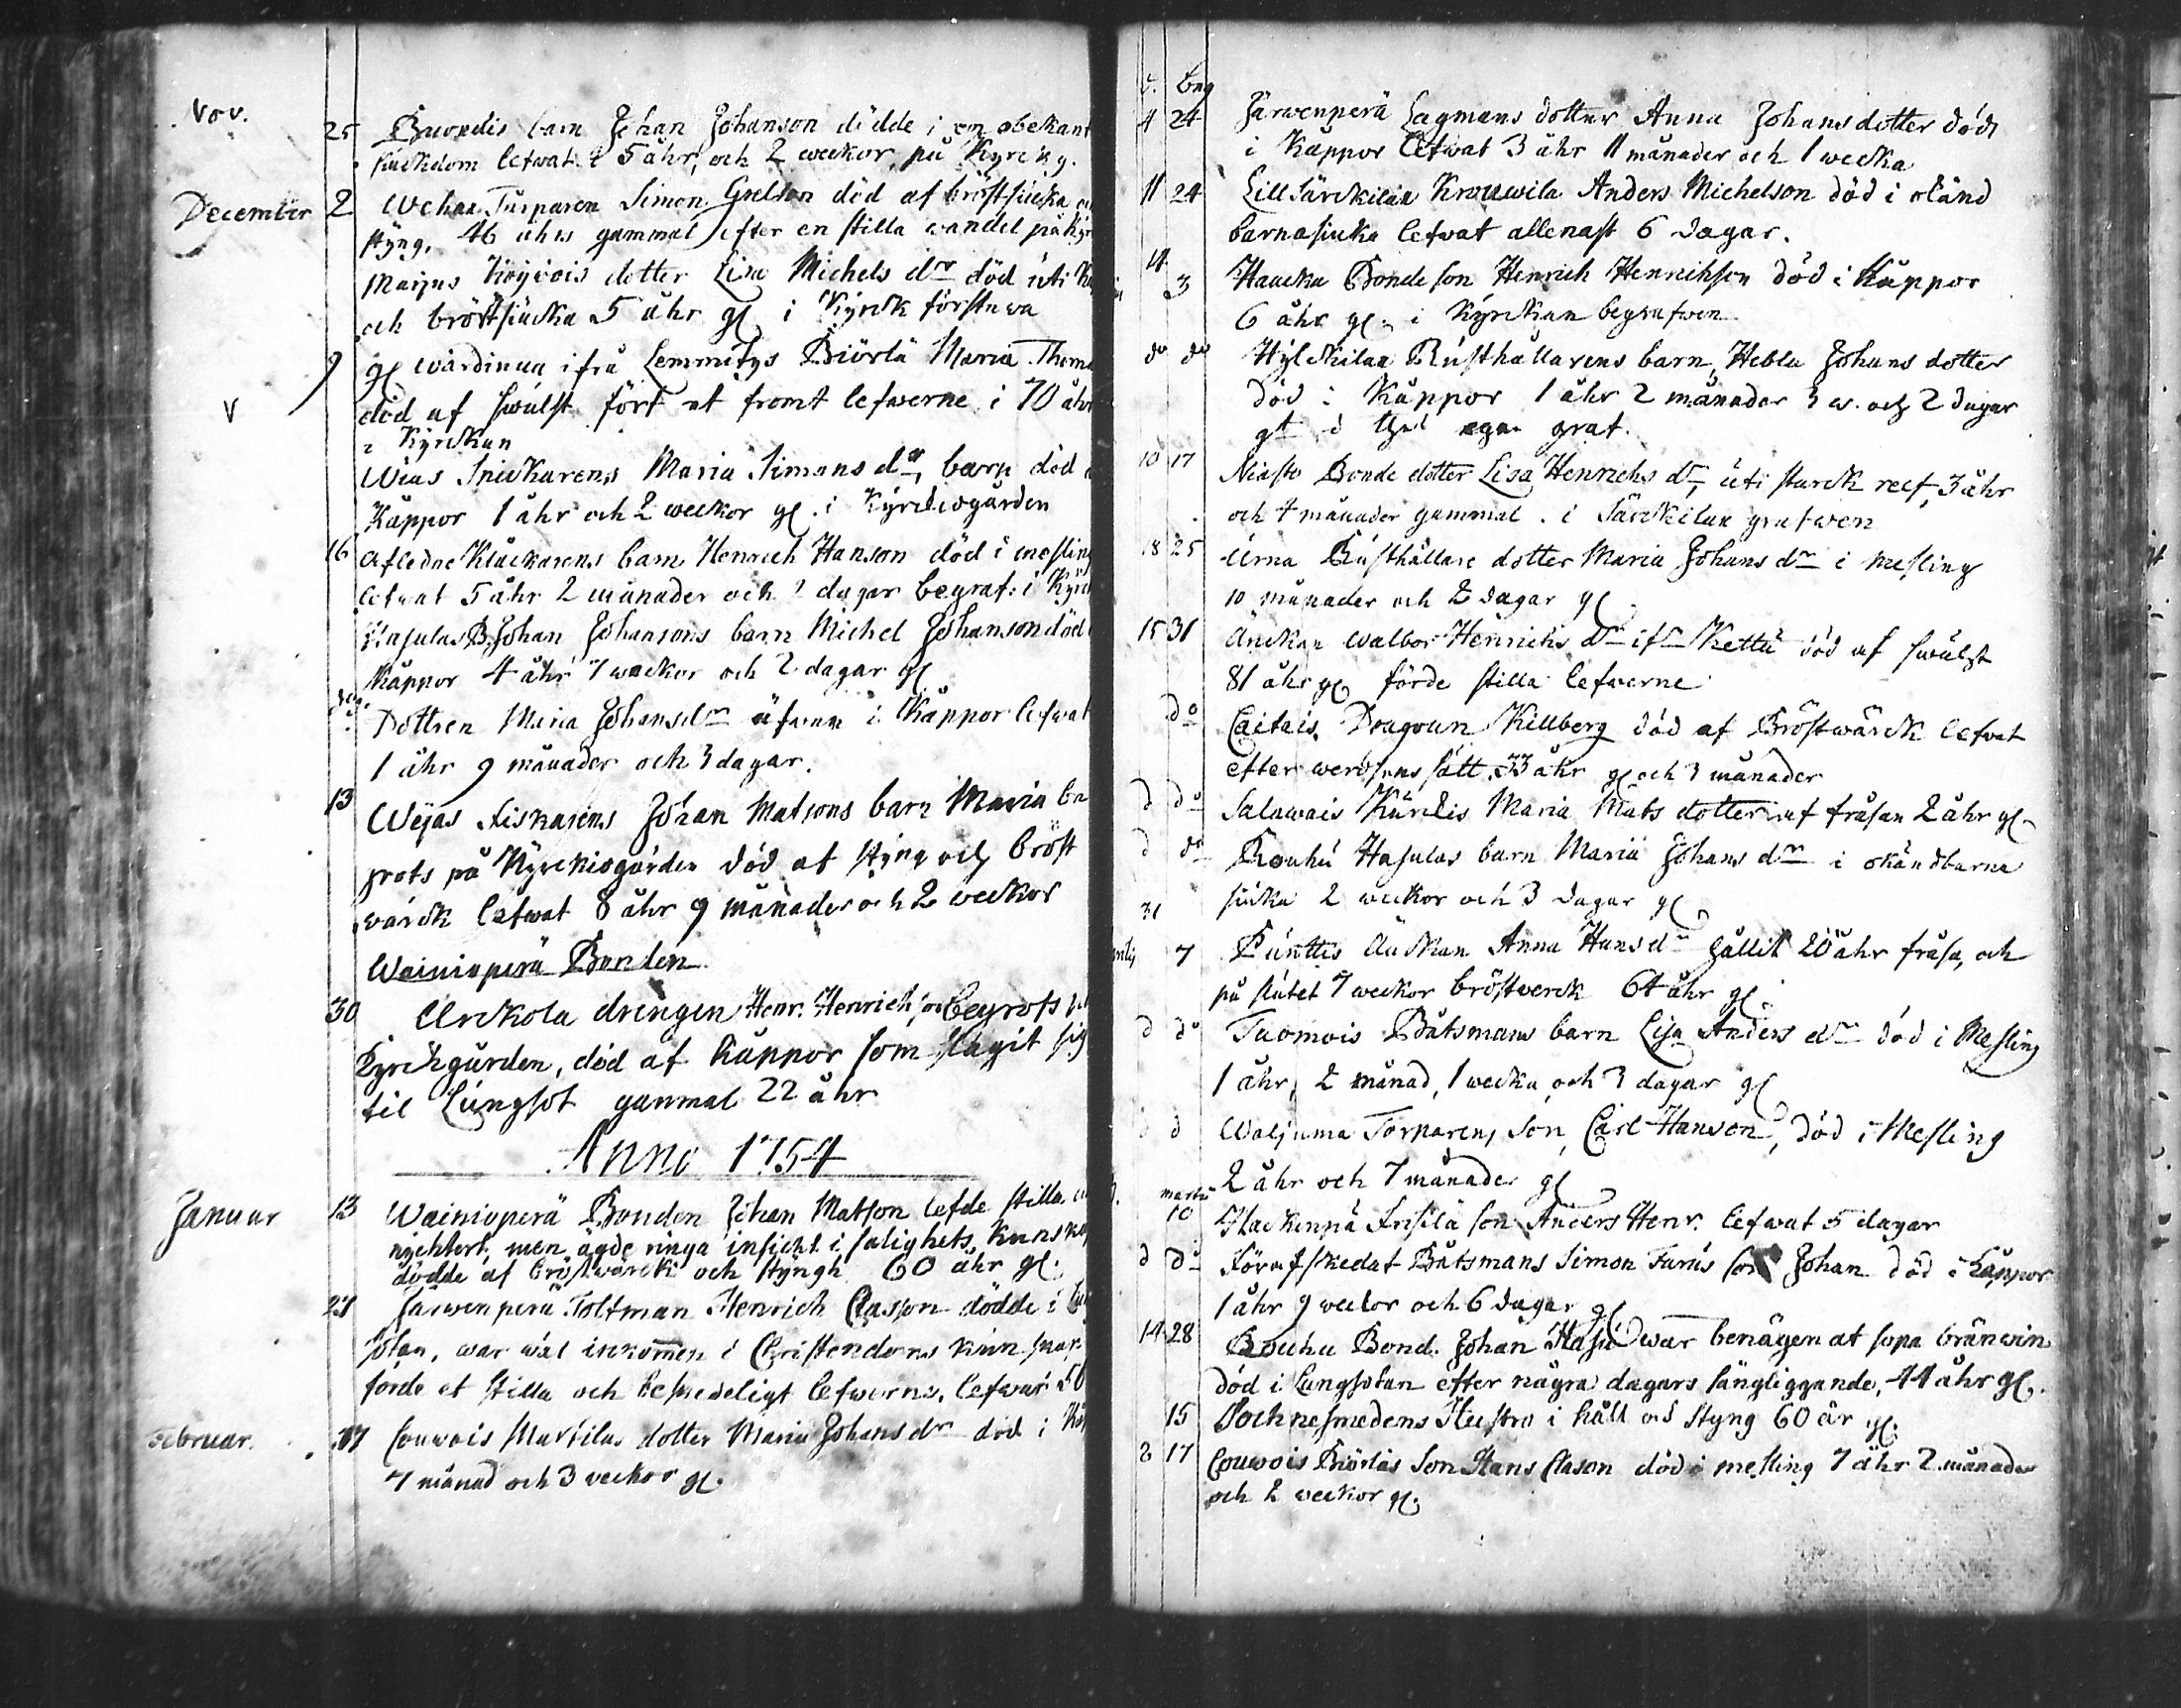 Nov.
25 Buoxdis barn Johan Johanson dödde i en obekant
siuckdom lefwat 5 åhr, och 2 weckor, på Kyrckg.
December 2 Wehan Turparen Simon Grelson död af bröstsiucka
styng, 46 åhrs gammal efter en stilla wandel på Kyr
Marjus Köyvois dotter Lisa Michels dr död uti
och bröstsiucka 5 åhr gl i Kyrck förstuwa
9 gl wärdinna ifrå Lemmitys Biörlä Maria Thom
död af swulst fört et fromt lefwerne i 70 åhr
i Kyrckan
Wias Snickarens Maria Simons dr, barn död
Kåppor 1 åhr och 2 weckor gl. i Kyrckiogården
16 Afledne Klåckarens barn Henrich Hanson död i mesling
lefwat 5 åhr 2 månader och 2 dagar begraf: i Kyrck
Hasulas B. Johan Johansons barn Michel Johanson död
Kåppor 4 åhr 7 weckor och 2 dagar gl
Dottren Maria Johansdr äfwen i Kåppor lefwat
1 åhr 9 månader och 3 dagar.
13 Weyas Fiskarens Johan Matsons barn Maria be
grofs på Kyrckiogården död af styng och bröst
wärck lefwat 8 åhr 9 månader och 2 weckor
Wainiоperä Bonden
30 Urckola drengen Henr. Henrichson begrofs
Kyrckgården, död af kåppor som slagit sig
til Lungsot gammal 22 åhr
Anno 1754
Januar 13 Wainioperä Bonden Johan Matson lefde stilla
nychtert, men ägde ringa insicht i salighets kunskap
dödde af bröstwärck och styngh 60 åhr gl.
27 Järwenperä Toltman Henrich Classon dödde i
soten, war wäl inkommen i Christendoms kunskap
förde et stilla och beskedeligt lefwerne, lefwat 50
Februar. 17 Couwois Marttilas dotter Maria Johansdr död i
7 månad och 3 weckor gl.
d. beg
4 24 Järwenperä Lagmans dotter Anna Johansdotter död
i Kåppor lefwat 3 åhr 11 månader och 1 wecka
11 24 Lill Särckilax Krouwila Anders Michelson död i okänd
barnasiucka lefwat allenast 6 dagar.
3 Haucka Bondeson Henrich Henrichson död i Kåppor
6 åhr gl. i Kyrckan begrafwen
do do Hyлckilax Rusthållarens barn, Hebla Johans dotter
död i Kåppor 1 åhr 2 månader 3 w. och 2 dagar
gl i egen graf.
10 17 Niasto Bonde dotter Lisa Henrichs dr, uti starck reef, 3 åhr
och 4 månader gammal. i Särckilax grafwen
18 25 Urna Rusthållare dotter Maria Johans dr i Mesling
10 månader och 2 dagar gl
15 31 Änckan Walbor Henrichs dr ifr Kettu död af swulst
81 åhr gl förde stilla lefwerne
do Caitais Dragoun Killberg död af Bröstwärck lefwat
efter werdsens sätt. 33 åhr gl och 3 månader
d do Salawais Kärckis Maria Mats dotter af fråsan 2 åhr gl
d do Rouhu Hasulas barn Maria Johans dr i okändbarna
siucka 2 weckor och 3 dagar gl
31
7 Punttis Änckan Anna Hansdr hållit 20 åhr fråsa, och
på slutet 7 weckor bröstverck 64 åhr gl
d do Tuomois Båtsmans barn Lisa Anders dr död i Mesling
1 åhr, 2 månad, 1 wecka, och 3 dagar gl
d d Waljuma Torparens Son, Carl Hanson, död i Mesling
2 åhr och 7 månader gl
martii
10 Hackenpä Frisilä son Anders Henr. lefwat 5 dagar
d do Förafskedat Båtsmans Simon Turus son Johan död i Kåppor
1 åhr 9 weckor och 6 dagar gl
14 28 Bouhu Bond. Johan Hasu war benägen at supa bränwin
död i Lungsotan efter några dagars sängliggande, 44 åhr gl.
15 Sochnesmedens Hustro i håll och Styng 60 år gl.
8 17 Couwois Biörläs Son Hans Clason död i mesling 7 åhr 2 månader
och 2 weckor gl.